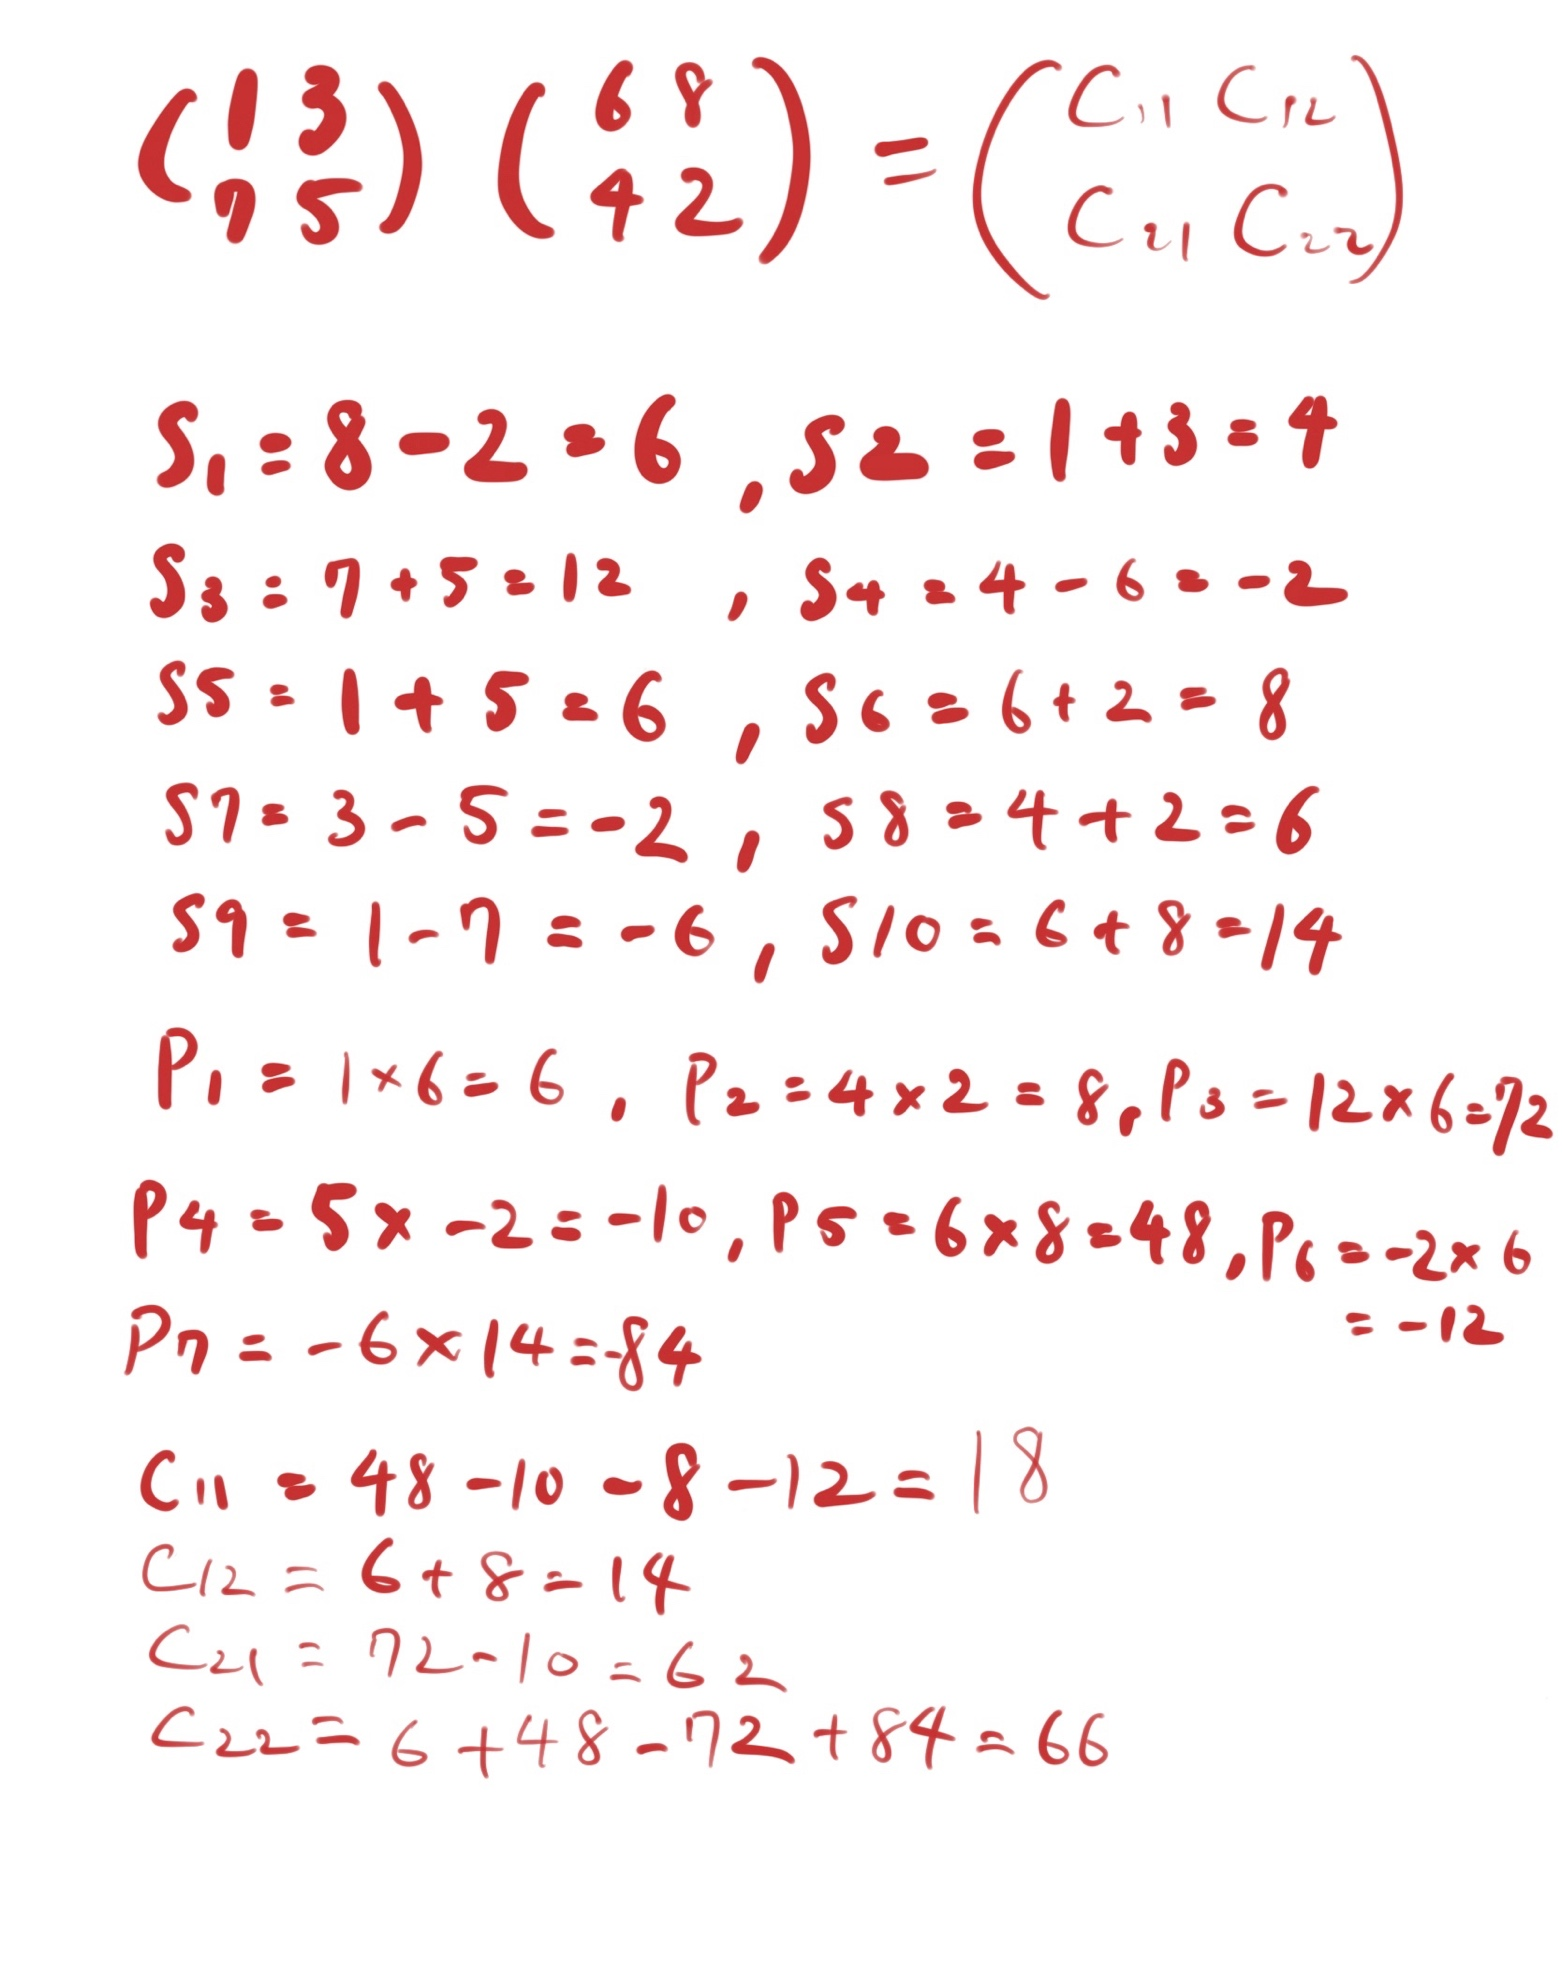 (1 3) (6 8) = (C11 C12)
(7 5) (4 2) (C21 C22)
S1 = 8 - 2 = 6 , S2 = 1 + 3 = 4
S3 = 7 + 5 = 12 , S4 = 4 - 6 = -2
S5 = 1 + 5 = 6 , S6 = 6 + 2 = 8
S7 = 3 - 5 = -2 , S8 = 4 + 2 = 6
S9 = 1 - 7 = -6 , S10 = 6 + 8 = 14
P1 = 1 × 6 = 6 , P2 = 4 × 2 = 8, P3 = 12 × 6 = 72
P4 = 5 × -2 = -10, P5 = 6 × 8 = 48, P6 = -2 × 6
= -12
P7 = -6 × 14 = -84
C11 = 48 - 10 - 8 - 12 = 18
C12 = 6 + 8 = 14
C21 = 72 - 10 = 62
C22 = 6 + 48 - 72 + 84 = 66